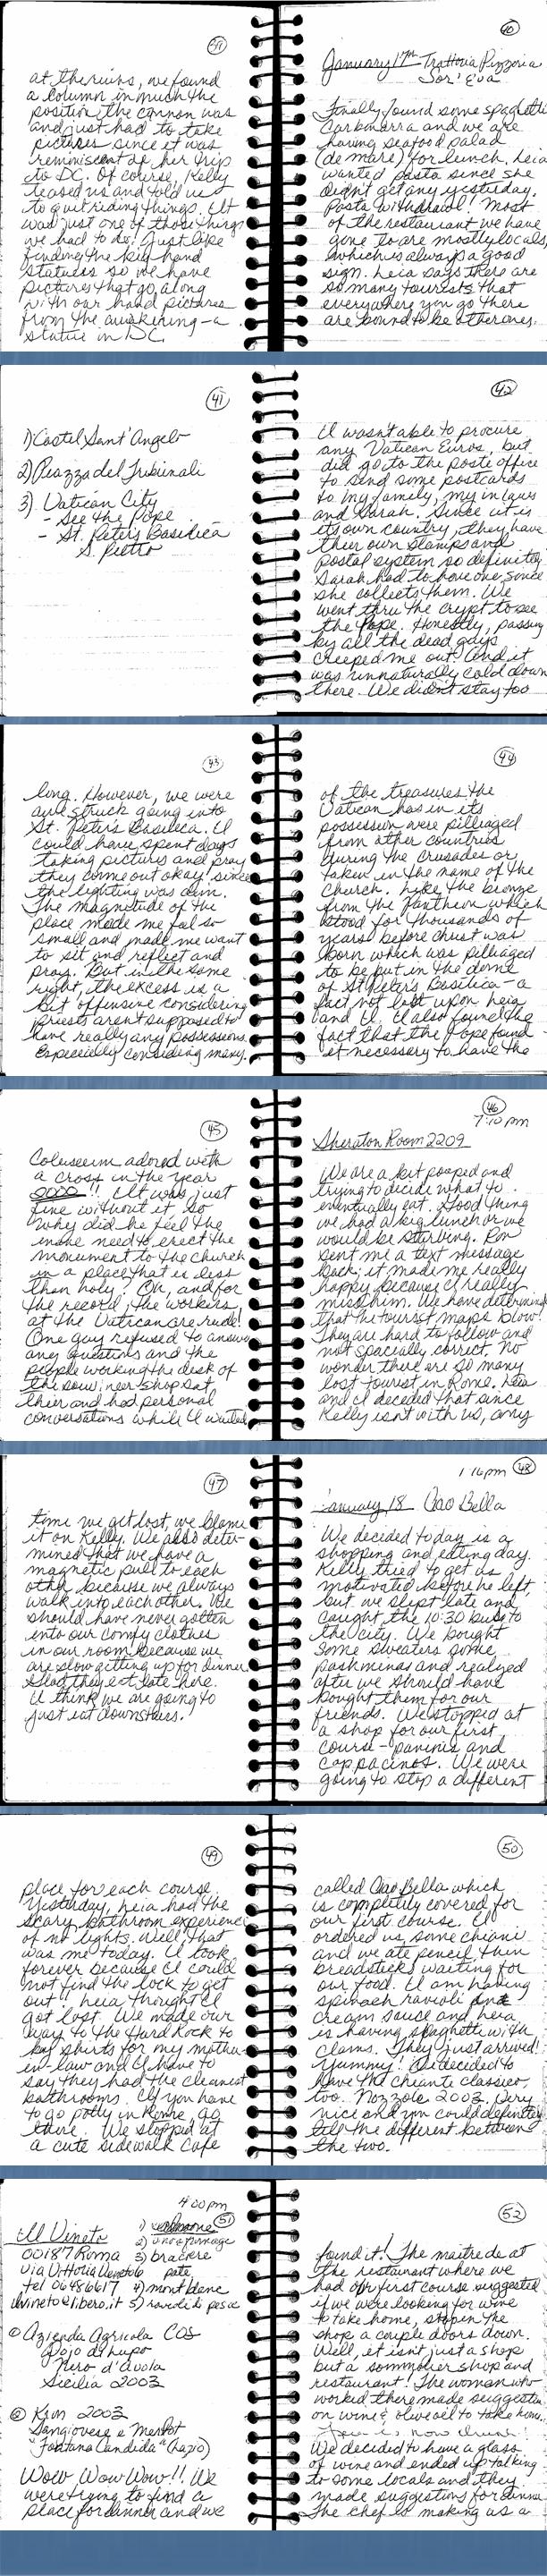 39
at the ruins, we found
a column in much the
position the cannon was
and just had to take
pictures since it was
reminiscent of her trip
to DC. Of course, Kelly
teased us and told us
to quit riding things. It
was just one of those things
we had to do. Just like
finding the big hand
statues so we have
pictures that go along
with our hand pictures
from the awakening - a
statue in DC.
40
January 17th Trattoria Pizzeria
Sor' Eva
Finally found some spaghetti
Carbonarra and we are
having seafood salad
(de mare) for lunch. Leia
wanted pasta since she
didn't get any yesterday.
Pasta withdrawl! Most
of the restaurant we have
gone to are mostly locals,
which is always a good
sign. Leia says there are
so many tourists that
everywhere you go there
are bound to be other ones.
41
1) Castel Sant' Angelo
2) Piazza del Tribunali
3) Vatican City
- See the Pope
- St. Peter's Basilica
S. Pietro
42
I wasn't able to procure
any Vatican Euros, but
did go to the poste office
to send some postcards
to my family, my in laws
and Sarah. Since it is
its own country, they have
thier own stamps and
postal system so definitely
Sarah had to have one since
she collects them. We
went thru the crypt to see
the Pope. Honestly, passing
by all the dead guys
creeped me out! And it
was unnaturally cold down
there. We didn't stay too
43
long. However, we were
awe struck going into
St. Peter's Basilica. I
could have spent days
taking pictures and pray
they come out okay since
the lighting was dim.
The magnitude of the
place made me feel so
small and made me want
to sit and reflect and
pray. But in the same
right, the excess is a
bit offensive considering
priests aren't supposed to
have really any possessions.
Especially considering many
44
of the treasures the
Vatican has in its
possession were pilliaged
from other countries
during the Crusades or
taken in the name of the
Church. Like the bronze
from the Pantheon which
stood for thousands of
years before christ was
born which was pilliaged
to be put in the dome
of St Peter's Basilica - a
fact not lost upon Leia
and I. I also found the
fact that the Pope found
it necessary to have the
45
Coluseum adored with
a cross in the year
2000!! It was just
fine without it. So
why did he feel the
need to erect the
monument to the church
in a place that is less
than holy. Oh, and for
the record, the workers
at the Vatican are rude!
One guy refused to answer
any questions and the
people working the desk of
the souvineer shop sat
thier and had personal
conversations while I waited.
46
7:10 pm
Sheraton Room 2209
We are a bit pooped and
trying to decide what to
eventually eat. Good thing
we had a big lunch or we
would be starving. Ron
sent me a text message
back; it made me really
happy because I really
miss him. We have determined
that the tourist maps blow!
They are hard to follow and
not specially correct. No
wonder there are so many
lost tourist in Rome. Leia
and I decided that since
Kelly isn't with us, any
47
time we get lost, we blame
it on Kelly. We also deter-
mined that we have a
magnetic pull to each
other because we always
walk into each other. We
should have never gotten
into our comfy clothes
in our room because we
are slow getting up for dinner.
Glad they eat late here.
I think we are going to
just eat downstairs.
1:16pm 48
January 18 Ciao Bella
We decided today is a
shopping and eating day.
Kelly tried to get us
motivated before he left,
but we slept late and
caught the 10:30 bus to
the city. We bought
some sweaters some
pashminas and realized
after we should have
bought them for our
friends. We stopped at
a shop for our first
course - paninis and
cappacinos. We were
going to stop a different
49
place for each course.
Yesterday, Leia had the
scary bathroom experience
of no lights. Well that
was me today. I took
forever because I could
not find the lock to get
out! Leia thought I
got lost. We made our
way to the Hard Rock to
buy shirts for my mother
in-law and I have to
say they had the cleanest
bathrooms. If you have
to go potty in Rome, go
there. We stopped at
a cute sidewalk cafe
50
called Ciao Bella which
is completely covered for
our first course. I
ordered us some chianti
and we ate pencil thin
breadsticks waiting for
our food. I am having
spinach ravioli in a
cream sause and Leia
is having spaghetti with
clams. They just arrived!
Yummy! I decided to
have the chiante classico
too. Nozzole 2003. Very
nice and you could definitely
tell the different between
the two.
4:00pm
51
Il Vineto
00187 Roma
Via Vittotia Veneto
tel 06486617
ilvineto@libero.it
1)
2) vino e formage
3)
pate
4) mont blanc
5) ravioli di pesce
① Azienda Agricola COS
Pojo di Lupo
Nero d'avola
Sicilia 2003
② Kron 2003
Sangiovese e Merlot
"Fontana Candida" (Lazio)
Wow Wow Wow!! We
were trying to find a
place for dinner and we
52
found it! The maitre de at
the restaurant where we
had our first course suggested
if we were looking for wine
to take home, stop in the
shop a couple doors down.
Well, it isn't just a shop
but a sommolier shop and
restaurant! The woman who
worked there made suggestion
on wine & olive oil to take home.
is now
We decided to have a glass
of wine and ended up talking
to some locals and they
made suggestions for dinner.
The chef is making us a